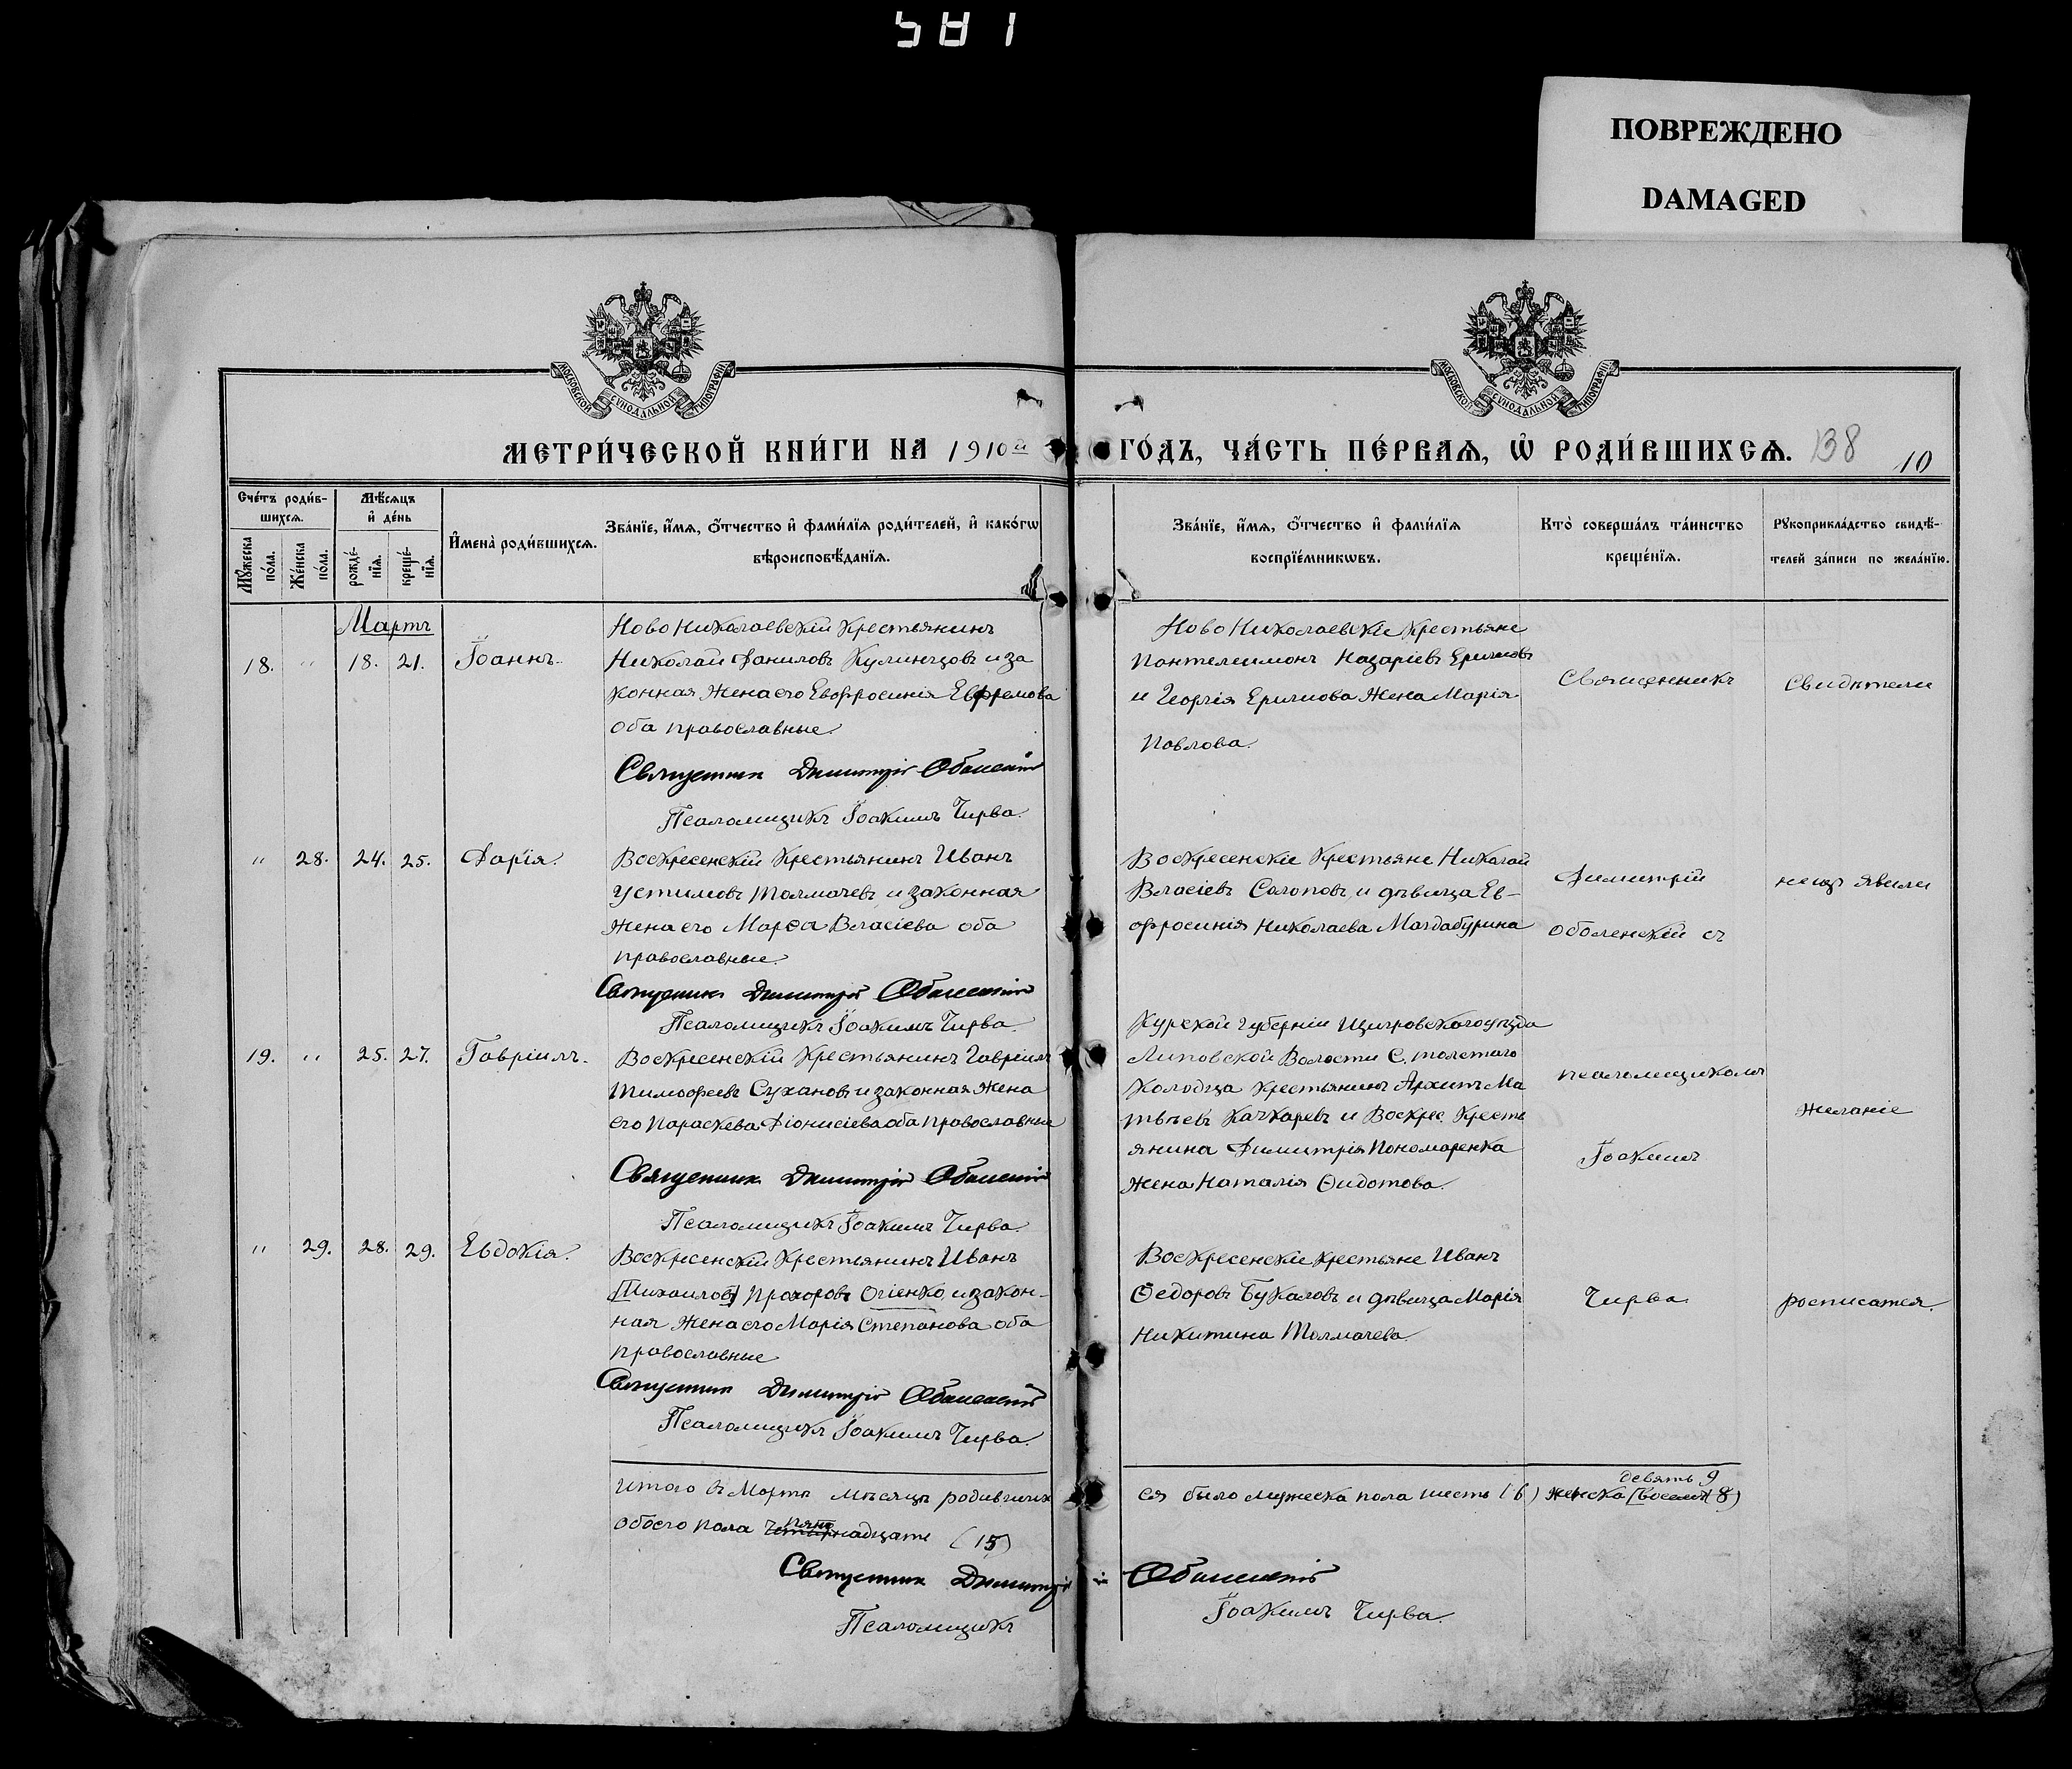 581
ПОВРЕЖДЕНО
DAMAGED
МОСКОВСКОЙ СУНОДАЛЬНОЙ ТИПОГРАФІИ
МОСКОВСКОЙ СУНОДАЛЬНОЙ ТИПОГРАФІИ
МЕТРИ́ЧЕСКОЙ КНИ́ГИ НА 1910й ГО́ДЪ, ЧА́СТЬ ПЕ́РВАѦ, Ѡ РОДИ́ВШИХСѦ. 138 10
Сче́тъ роди́в-
шихсѧ.
Мѣ́сѧцъ
и҆ де́нь
Мꙋ́жеска по́ла.
Же́нска по́ла.
рожде́-
нїѧ.
креще́-
нїѧ.
И҆мена̀ роди́вшихсѧ.
Зва́нїе, и҆́мѧ, ѻ҆́тчество и҆ фами́лїѧ роди́телей, и҆ како́гѡ
вѣроисповѣ́данїѧ.
Зва́нїе, и҆́мѧ, ѻ҆́тчество и҆ фами́лїѧ
воспрїе́мникѡвъ.
Кто̀ соверша́лъ та́инство
креще́нїѧ.
Рꙋкоприкла́дство свидѣ́-
телей за́писи по жела́нїю.
Мартъ
18. " 18. 21. Іоаннъ.
Ново Николаевскій Крестьянинъ
Николай Даниловъ Кулинцовъ и за
конная жена его Евфросинія Евфремова
оба православные.
Священник Димитрій Оболенскій
Псаломщикъ Іоакимъ Чирва.
Ново Николаевскіе Крестьяне
Пантелеимонъ Назаріевъ Ерилловъ
и Георгія жена Марія
Павлова.
Священникъ
Свидѣтели
" 28. 24. 25. Дарія.
Воскресенскій Крестьянинъ Иванъ
Устимовъ Толмачевъ и законная
жена его Марѳа Власіева оба
православные.
Священник Димитрій Оболенскій
Псаломщикъ Іоакимъ Чирва.
Воскресенскіе Крестьяне Николай
Власіевъ Солоповъ и дѣвица Ев-
фросинія Николаева Магдабурина
Димитрій
Оболенскій съ
неизъявили
19. " 25. 27. Гавріилъ.
Воскресенскій Крестьянинъ Гавріилъ
Тимофеевъ Сухановъ и законная жена
его Параскева Діонисіева оба православные
Священник Димитрій Оболенскій
Псаломщикъ Іоакимъ Чирва.
Курской губерніи Щигровского уѣзда
Липовской Волости С. толстаго
Колодца крестьянинъ Архипъ Ма
твѣевъ Качкаревъ и Воскрес. Кресть
янина Димитрія Пономаренка
жена Наталія Ѳидотова.
псаломщикомъ
Іоакимъ
желаніе
" 29. 28. 29. Евдокія.
Воскресенскій Крестьянинъ Иванъ
[Михаиловъ] Прохоровъ Огіенко и закон-
ная жена его Марія Степанова оба
православные
Священник Димитрій Оболенскій
Псаломщикъ Іоакимъ Чирва.
Воскресенскіе крестьяне Иванъ
Ѳедоровъ Букаловъ и дѣвица Марія
Никитина Толмачева
Чирва
росписатся.
девять 9
Итого въ Мартѣ мѣсяцѣ родивших ся было мужеска пола шесть (6) женска [восемь 8)
пят
обоего пола четырнадцать (15)
Священник Димитрій Оболенскій
Псаломщикъ Іоакимъ Чирва.